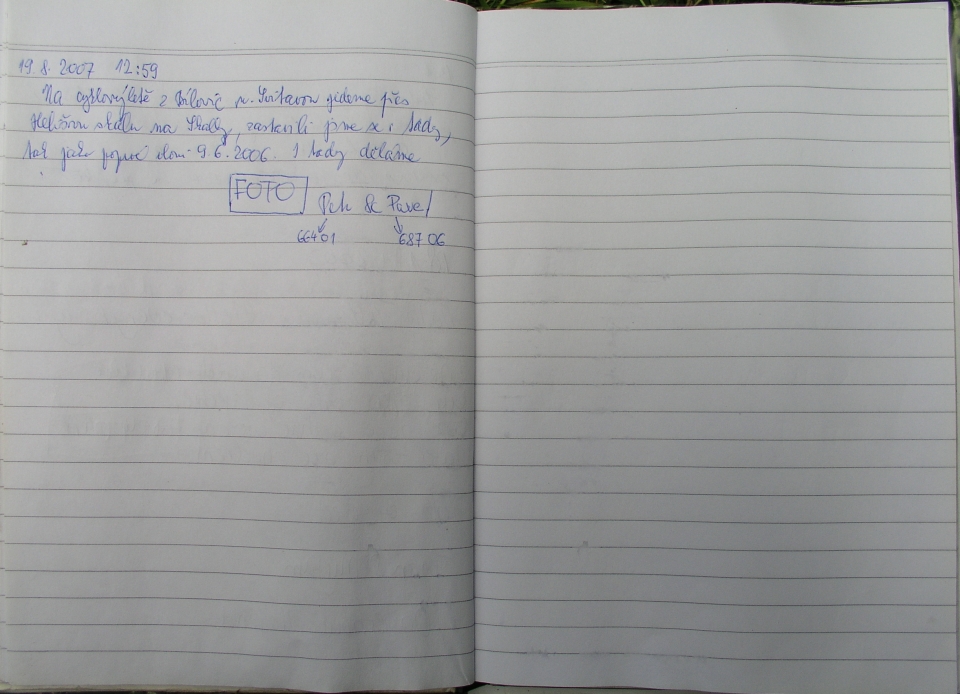 19.8.2007 12:59
Na cyklovýletě z Bílovic n. Svitavou jedeme přes
skálu na Skalky, zastavili jsme se i tady,
tak jako poprvé vloni 9.6.2006. I tady děláme
FOTO Petr & Pavel
66401 68706